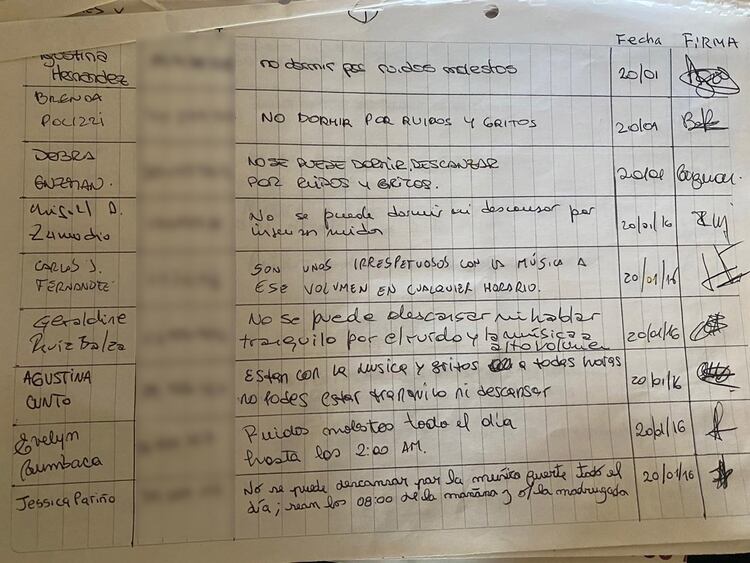 Fecha FIRMA
Agustina
Hernandez no dormir por ruidos molestos 20/01
BRENDA
POLIZZI NO DORMIR POR RUIDOS Y GRITOS 20/01
DEBRA NO SE PUEDE DORMIR, DESCANZAR
GUZMAN. POR RUIDOS Y GRITOS. 20/01 Guzman.
Miguel A. No se puede dormir ni descansar por
Zamudio ruidor 20/01/16
CARLOS J. SON UNOS IRRESPETUOSOS CON LA MÚSICA A
FERNANDEZ. ESE VOLUMEN EN CUALQUIER HORARIO. 20/01/16
Geraldine No se puede descansar ni hablar
Ruiz Balza tranquilo por el ruido y la música a
alto volumen 20/01/16
AGUSTINA Estan con la musica y gritos a todas horas
CUNTO no podes estar tranquilo ni descansar 20/01/16
Evelyn Ruidos molestos todo el día
Rumbaca hasta las 2:00 AM. 20/01/16
Jessica Pariño No se puede descansar por la musica fuerte todo el
día; sean las 08:00 de la mañana y o/ la madrugada 20/01/16